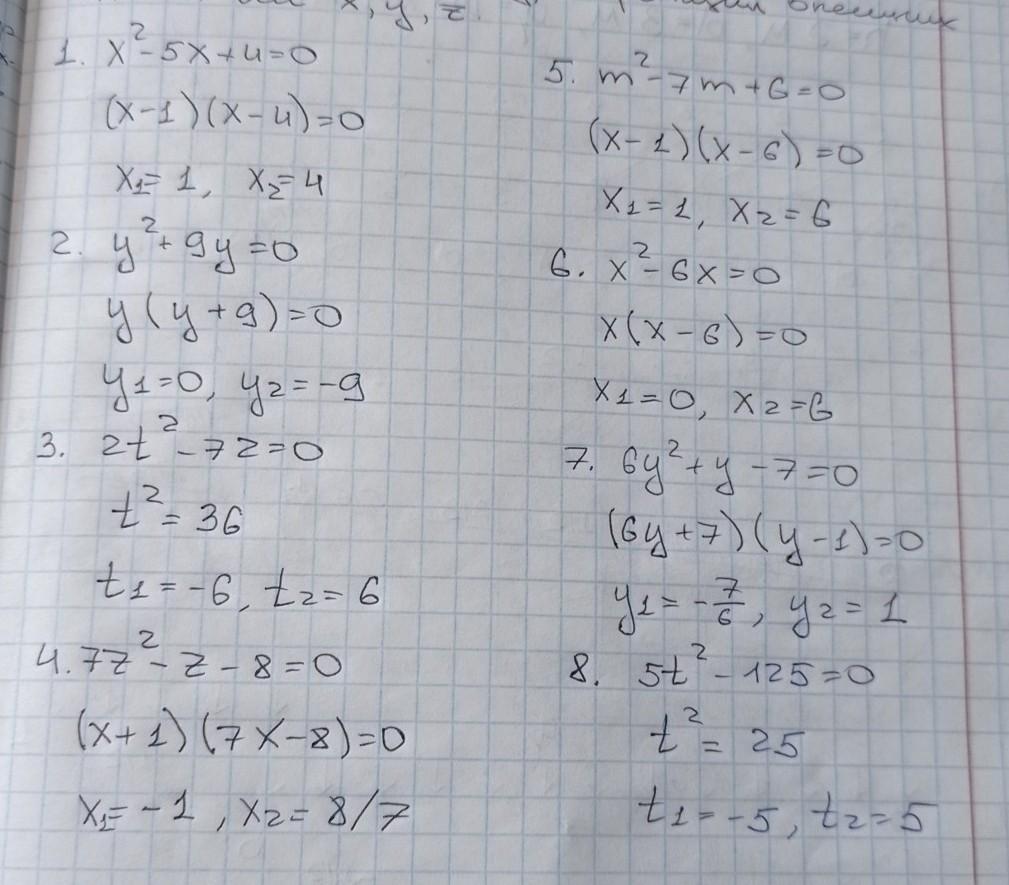 x, y, z
1. x²-5x+4=0
(x-1)(x-4)=0
x₁=1, x₂=4
2. y²+9y=0
y(y+9)=0
y₁=0, y₂=-9
3. 2t²-72=0
t²=36
t₁=-6, t₂=6
4. 7z²-z-8=0
(x+1)(7x-8)=0
x₁=-1, x₂=8/7
5. m²-7m+6=0
(x-1)(x-6)=0
x₁=1, x₂=6
6. x²-6x=0
x(x-6)=0
x₁=0, x₂=6
7. 6y²+y-7=0
(6y+7)(y-1)=0
y₁=-7/6, y₂=1
8. 5t²-125=0
t²=25
t₁=-5, t₂=5